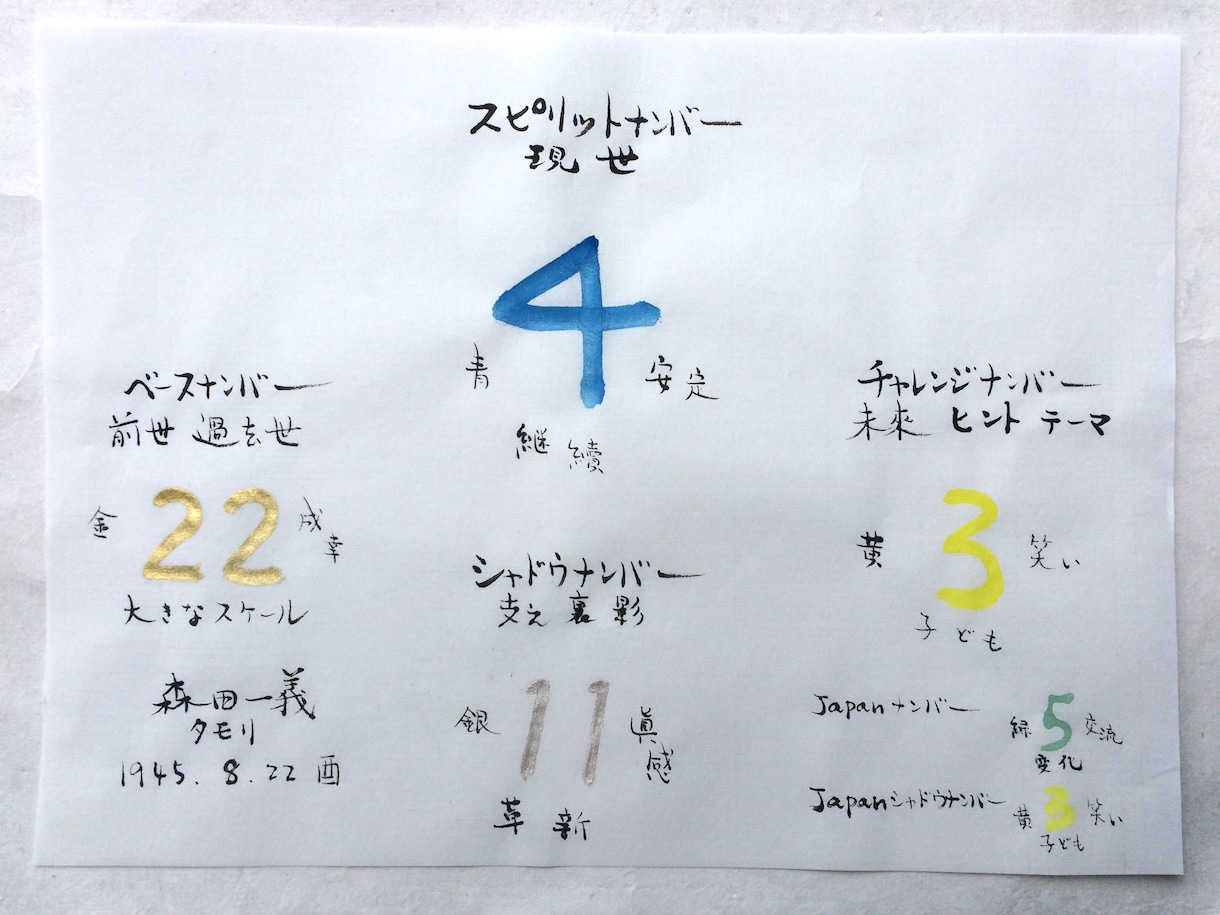 スピリットナンバー
現世
4
青 安定
継續
ベースナンバー
前世 過去世
金 22 成幸
大きなスケール
チャレンジナンバー
未來 ヒント テーマ
黄 3 笑い
子ども
シャドウナンバー
支え 裏 影
銀 11 眞感
革新
森田一義
タモリ
1945. 8. 22 酉
Japanナンバー 緑 5 交流
変化
Japanシャドウナンバー 黄 3 笑い
子ども